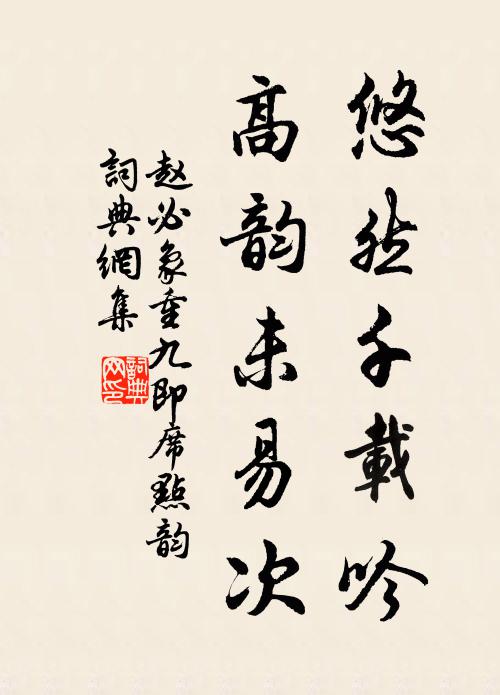 悠然千載吟
高韵未易次
赵必象重九即席點韵
詞典網集
詞典
网印